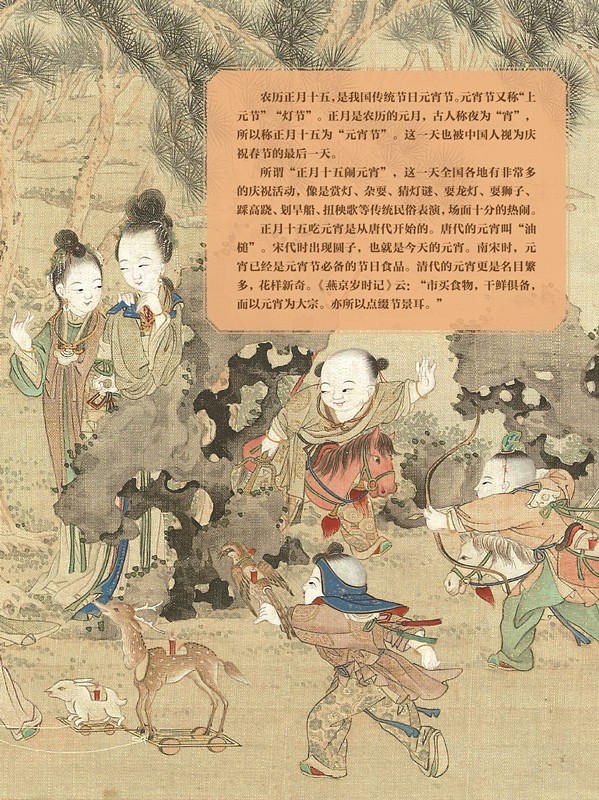 农历正月十五，是我国传统节日元宵节。元宵节又称“上
元节”“灯节”。正月是农历的元月，古人称夜为“宵”，
所以称正月十五为“元宵节”。这一天也被中国人视为庆
祝春节的最后一天。
所谓“正月十五闹元宵”，这一天全国各地有非常多
的庆祝活动，像是赏灯、杂耍、猜灯谜、耍龙灯、耍狮子、
踩高跷、划旱船、扭秧歌等传统民俗表演，场面十分的热闹。
正月十五吃元宵是从唐代开始的。唐代的元宵叫“油
𫃎”。宋代时出现圆子，也就是今天的元宵。南宋时，元
宵已经是元宵节必备的节日食品。清代的元宵更是名目繁
多，花样新奇。《燕京岁时记》云：“市买食物，干鲜俱备，
而以元宵为大宗。亦所以点缀节景耳。”